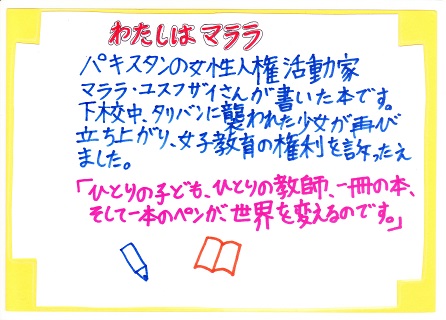 わたしは マララ
パキスタンの女性人権活動家
マララ・ユスフザイさんが書いた本です。
下校中、タリバンに襲われた少女が再び
立ち上がり、女子教育の権利を訴ったえ
ました。
「ひとりの子ども、ひとりの教師、一冊の本、
そして一本のペンが、世界を変えるのです。」